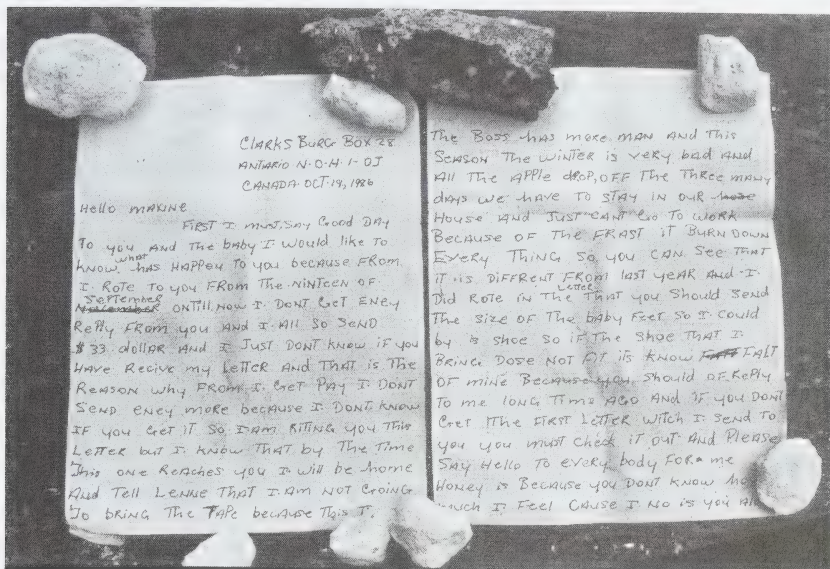 CLARKSBURG BOX 28
ANTARIO N.O.H-1-0J
CANADA OCT-19, 1986
Hello MAXINE
FIRST I MUST SAY GOOD DAY
To you AND The baby I WOULD like TO
KNOW what HAS HAPPEN TO you because FROM
I ROTE TO you FROM The NINTEEN OF
September ONTILL NOW I DONT GET ENEY
RePly FROM you AND I All SO SEND
$33 dollAR AND I JUST DONT KNOW IF you
HAVE Recive my LeTTER AND THAT IS The
REASON why FROM I GeT PAY I DONT
SEND ENEY more because I DONT KNOW
IF you GeT IT SO I AM RITING you This
LeTTER but I KNOW THAT by The Time
This ONE REACHES you I will be home
AND Tell LENNE THAT I AM NOT GOING
To bRING The TAPe because This I.
The BOSS HAS more MAN AND This
SEASON The WINTER is very bAD AND
All The APPle DROP, OFF The ThRee MANy
DAYS we HAVE TO STAY IN OUR
HOUSE AND JUST CANT GO TO WORK
BECAUSE OF The FRAST IT BURN DOWN
EVERY THING SO you CAN See THAT
iT is DiFFRENT FROM lAST yEAR AND I
DiD ROTE IN The LeTTER THAT you Should SEND
The SiZE OF The bAby FeeT SO I COULD
by is shoe SO IF The Shoe THAT I
BRING DOSE NOT FIT iTS KNOW FALT
OF mINE BECAUSE you Should OF RePly
TO me lONG Time AGO AND iF you DONT
GeT The FIRST LeTTER WITCH I SEND TO
you you must Check iT OUT AND Please
SAY Hello TO EVERY body FOR me
HONEY is BECAUSE you DONT KNOW
much I Feel CAUSE I NO is you